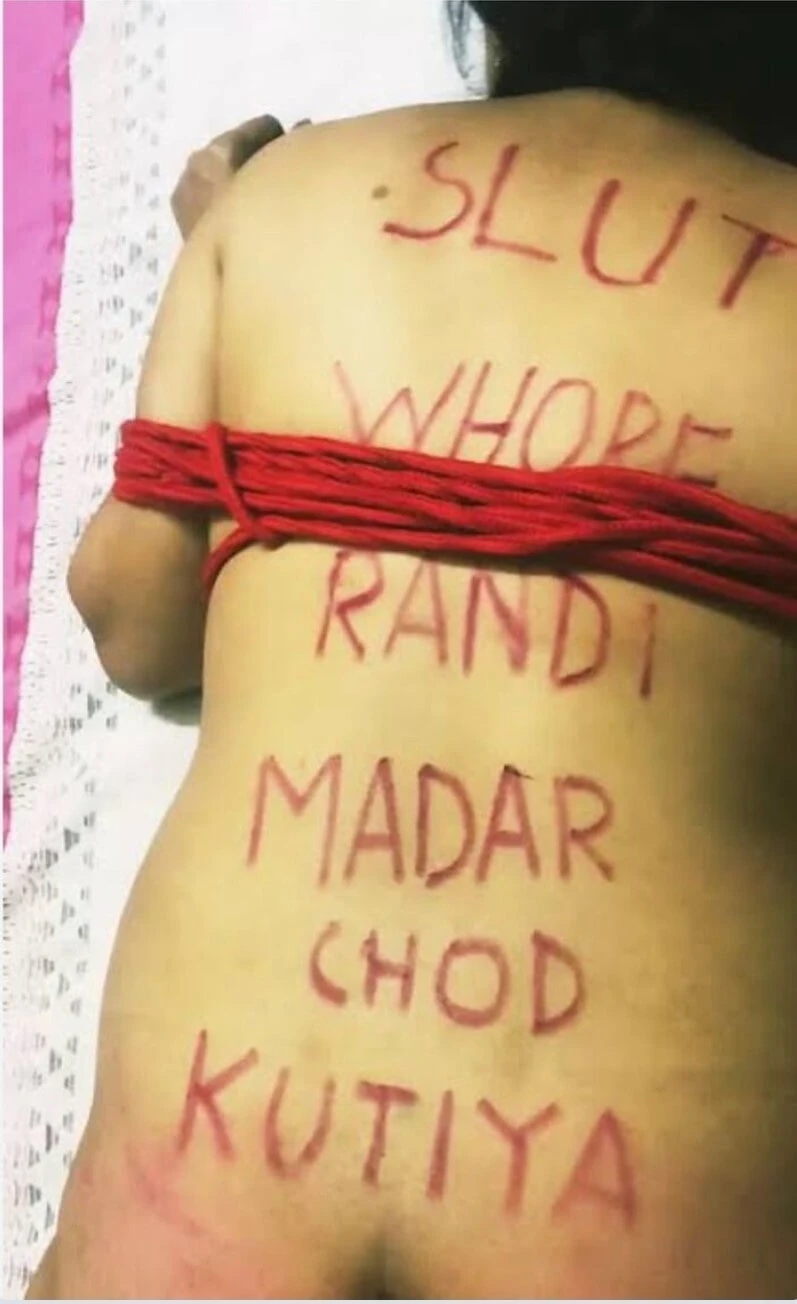 SLUT
WHORE
RANDI
MADAR
CHOD
KUTIYA